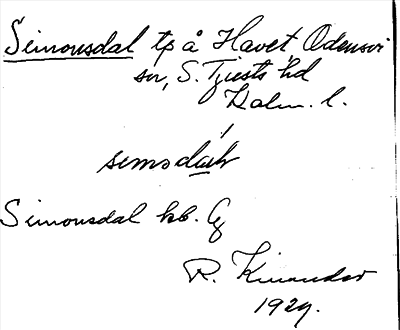 Simonsdal tp å Havet, Odensvi
sn, S. Tjusts hd
Kalm. l.
simsda
Simonsdal kb. Gg
R. Kinander
1929.